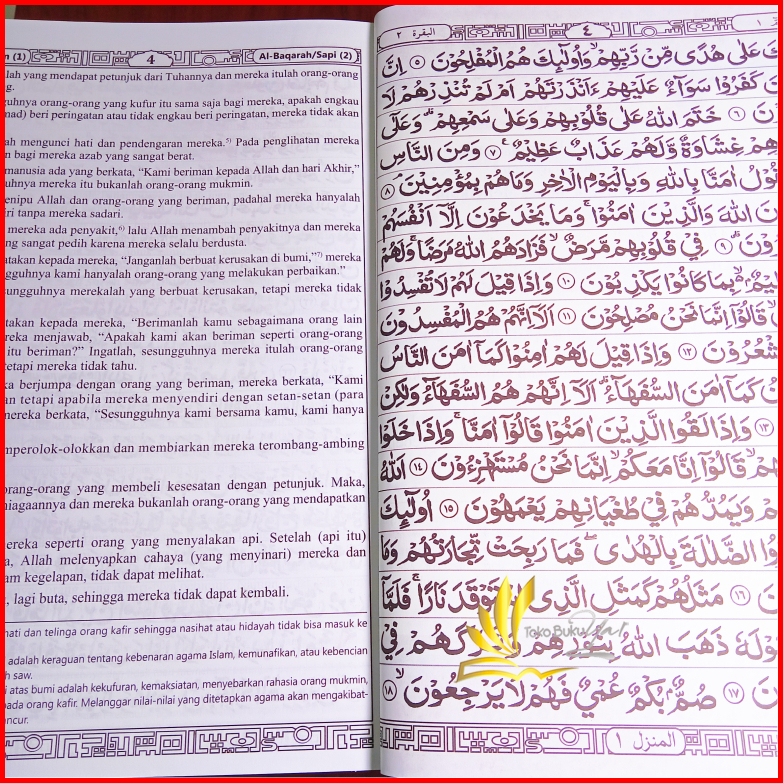 (1)
4
Al-Baqarah/Sapi (2)
yang mendapat petunjuk dari Tuhannya dan mereka itulah orang-orang
orang-orang yang kufur itu sama saja bagi mereka, apakah engkau
beri peringatan atau tidak engkau beri peringatan, mereka tidak akan
mengunci hati dan pendengaran mereka.⁵⁾ Pada penglihatan mereka
bagi mereka azab yang sangat berat.
manusia ada yang berkata, “Kami beriman kepada Allah dan hari Akhir,”
mereka itu bukanlah orang-orang mukmin.
Allah dan orang-orang yang beriman, padahal mereka hanyalah
tanpa mereka sadari.
mereka ada penyakit,⁶⁾ lalu Allah menambah penyakitnya dan mereka
sangat pedih karena mereka selalu berdusta.
kepada mereka, “Janganlah berbuat kerusakan di bumi,”⁷⁾ mereka
kami hanyalah orang-orang yang melakukan perbaikan.”
merekalah yang berbuat kerusakan, tetapi mereka tidak
kepada mereka, “Berimanlah kamu sebagaimana orang lain
menjawab, “Apakah kami akan beriman seperti orang-orang
itu beriman?” Ingatlah, sesungguhnya mereka itulah orang-orang
tetapi mereka tidak tahu.
berjumpa dengan orang yang beriman, mereka berkata, “Kami
tetapi apabila mereka menyendiri dengan setan-setan (para
mereka berkata, “Sesungguhnya kami bersama kamu, kami hanya
dan membiarkan mereka terombang-ambing
orang-orang yang membeli kesesatan dengan petunjuk. Maka,
dan mereka bukanlah orang-orang yang mendapatkan
mereka seperti orang yang menyalakan api. Setelah (api itu)
Allah melenyapkan cahaya (yang menyinari) mereka dan
kegelapan, tidak dapat melihat.
lagi buta, sehingga mereka tidak dapat kembali.
hati dan telinga orang kafir sehingga nasihat atau hidayah tidak bisa masuk ke
adalah keraguan tentang kebenaran agama Islam, kemunafikan, atau kebencian
saw.
atas bumi adalah kekufuran, kemaksiatan, menyebarkan rahasia orang mukmin,
orang kafir. Melanggar nilai-nilai yang ditetapkan agama akan mengakibat-
البقرة ٢
٤
١
عَلٰى هُدًى مِّنْ رَّبِّهِمْ ۙ وَاُولٰۤىِٕكَ هُمُ الْمُفْلِحُوْنَ ٥ اِنَّ
كَفَرُوْا سَوَاۤءٌ عَلَيْهِمْ ءَاَنْذَرْتَهُمْ اَمْ لَمْ تُنْذِرْهُمْ لَا
٦ خَتَمَ اللّٰهُ عَلٰى قُلُوْبِهِمْ وَعَلٰى سَمْعِهِمْ ۗ وَعَلٰٓى
غِشَاوَةٌ وَّلَهُمْ عَذَابٌ عَظِيْمٌ ٧ وَمِنَ النَّاسِ
اٰمَنَّا بِاللّٰهِ وَبِالْيَوْمِ الْاٰخِرِ وَمَا هُمْ بِمُؤْمِنِيْنَ ٨
اللّٰهَ وَالَّذِيْنَ اٰمَنُوْا ۚ وَمَا يَخْدَعُوْنَ اِلَّآ اَنْفُسَهُمْ
٩ فِيْ قُلُوْبِهِمْ مَّرَضٌ ۙ فَزَادَهُمُ اللّٰهُ مَرَضًا ۚ وَلَهُمْ
بِمَا كَانُوْا يَكْذِبُوْنَ ١٠ وَاِذَا قِيْلَ لَهُمْ لَا تُفْسِدُوْا
قَالُوْٓا اِنَّمَا نَحْنُ مُصْلِحُوْنَ ١١ اَلَآ اِنَّهُمْ هُمُ الْمُفْسِدُوْنَ
١٢ وَاِذَا قِيْلَ لَهُمْ اٰمِنُوْا كَمَآ اٰمَنَ النَّاسُ
كَمَآ اٰمَنَ السُّفَهَاۤءُ ۗ اَلَآ اِنَّهُمْ هُمُ السُّفَهَاۤءُ وَلٰكِنْ
١٣ وَاِذَا لَقُوا الَّذِيْنَ اٰمَنُوْا قَالُوْٓا اٰمَنَّا ۚ وَاِذَا خَلَوْا
قَالُوْٓا اِنَّا مَعَكُمْ ۙ اِنَّمَا نَحْنُ مُسْتَهْزِءُوْنَ ١٤ اَللّٰهُ
وَيَمُدُّهُمْ فِيْ طُغْيَانِهِمْ يَعْمَهُوْنَ ١٥ اُولٰۤىِٕكَ
الضَّلٰلَةَ بِالْهُدٰىۖ فَمَا رَبِحَتْ تِّجَارَتُهُمْ وَمَا
١٦ مَثَلُهُمْ كَمَثَلِ الَّذِى نَارًا ۚ فَلَمَّآ
ذَهَبَ اللّٰهُ بِنُوْرِهِمْ وَتَرَكَهُمْ فِيْ
١٧ صُمٌّ ۢ بُكْمٌ عُمْيٌ فَهُمْ لَا يَرْجِعُوْنَ ۙ ١٨
المنزل ١
Toko Buku